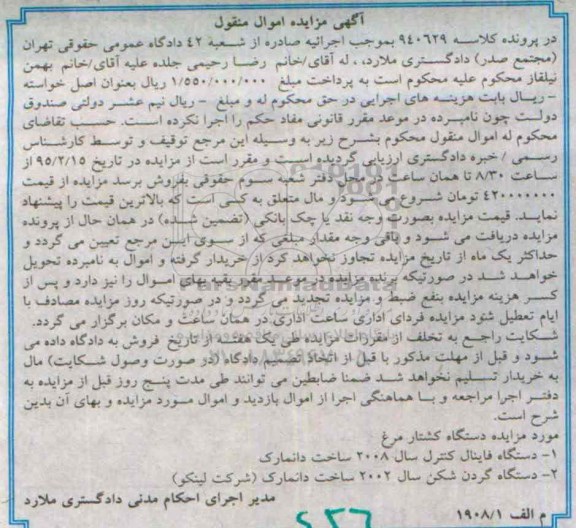 آگهی مزایده اموال منقول
در پرونده کلاسه ۹۴۰۶۲۹ بموجب اجرائیه صادره از شعبه ۴۲ دادگاه عمومی حقوقی تهران
(مجتمع صدر) دادگستری ملارد، ، له آقای/خانم رضا رحیمی جلده علیه آقای/خانم بهمن
نیلفاز محکوم علیه محکوم است به پرداخت مبلغ ۱/۵۵۰/۰۰۰/۰۰۰ ریال بعنوان اصل خواسته
- ریال بابت هزینه های اجرایی در حق محکوم له و مبلغ - ریال نیم عشر دولتی صندوق
دولت چون نامبرده در موعد مقرر قانونی مفاد حکم را اجرا نکرده است. حسب تقاضای
محکوم له اموال منقول محکوم بشرح زیر به وسیله این مرجع توقیف و توسط کارشناس
رسمی / خبره دادگستری ارزیابی گردیده است و مقرر است از مزایده در تاریخ ۹۵/۲/۱۵ از
ساعت ۸/۳۰ تا همان ساعت در محل دفتر شعبه سوم حقوقی بفروش برسد مزایده از قیمت
۴۲۰۰۰۰۰۰۰ تومان شروع می شود و مال متعلق به کسی است که بالاترین قیمت را پیشنهاد
نماید. قیمت مزایده بصورت وجه نقد یا چک بانکی (تضمین شده) در همان حال از پرونده
مزایده دریافت می شود و باقی وجه مقدار مبلغی که از سوی این مرجع تعیین می گردد و
حداکثر یک ماه از تاریخ مزایده تجاوز نخواهد کرد از خریدار گرفته و اموال به نامبرده تحویل
خواهد شد در صورتیکه برنده مزایده در موعد مقرر بقیه بهای اموال را نیز دارد و پس از
کسر هزینه مزایده بنفع ضبط و مزایده تجدید می گردد و در صورتیکه روز مزایده مصادف با
ایام تعطیل شود مزایده فردای اداری ساعت اداری در همان ساعت و مکان برگزار می گردد.
شکایت راجع به تخلف از مقررات مزایده طی یک هفته از تاریخ فروش به دادگاه داده می
شود و قبل از مهلت مذکور یا قبل از اتخاذ تصمیم دادگاه (در صورت وصول شکایت) مال
به خریدار تسلیم نخواهد شد ضمنا ضابطین می توانند طی مدت پنج روز قبل از مزایده به
دفتر اجرا مراجعه و با هماهنگی اجرا از اموال بازدید و اموال مورد مزایده و بهای آن بدین
شرح است.
مورد مزایده دستگاه کشتار مرغ
۱- دستگاه فاینال کنترل سال ۲۰۰۸ ساخت دانمارک
۲- دستگاه گردن شکن سال ۲۰۰۲ ساخت دانمارک (شرکت لینکو)
مدیر اجرای احکام مدنی دادگستری ملارد
م الف ۱۹۰۸/۱